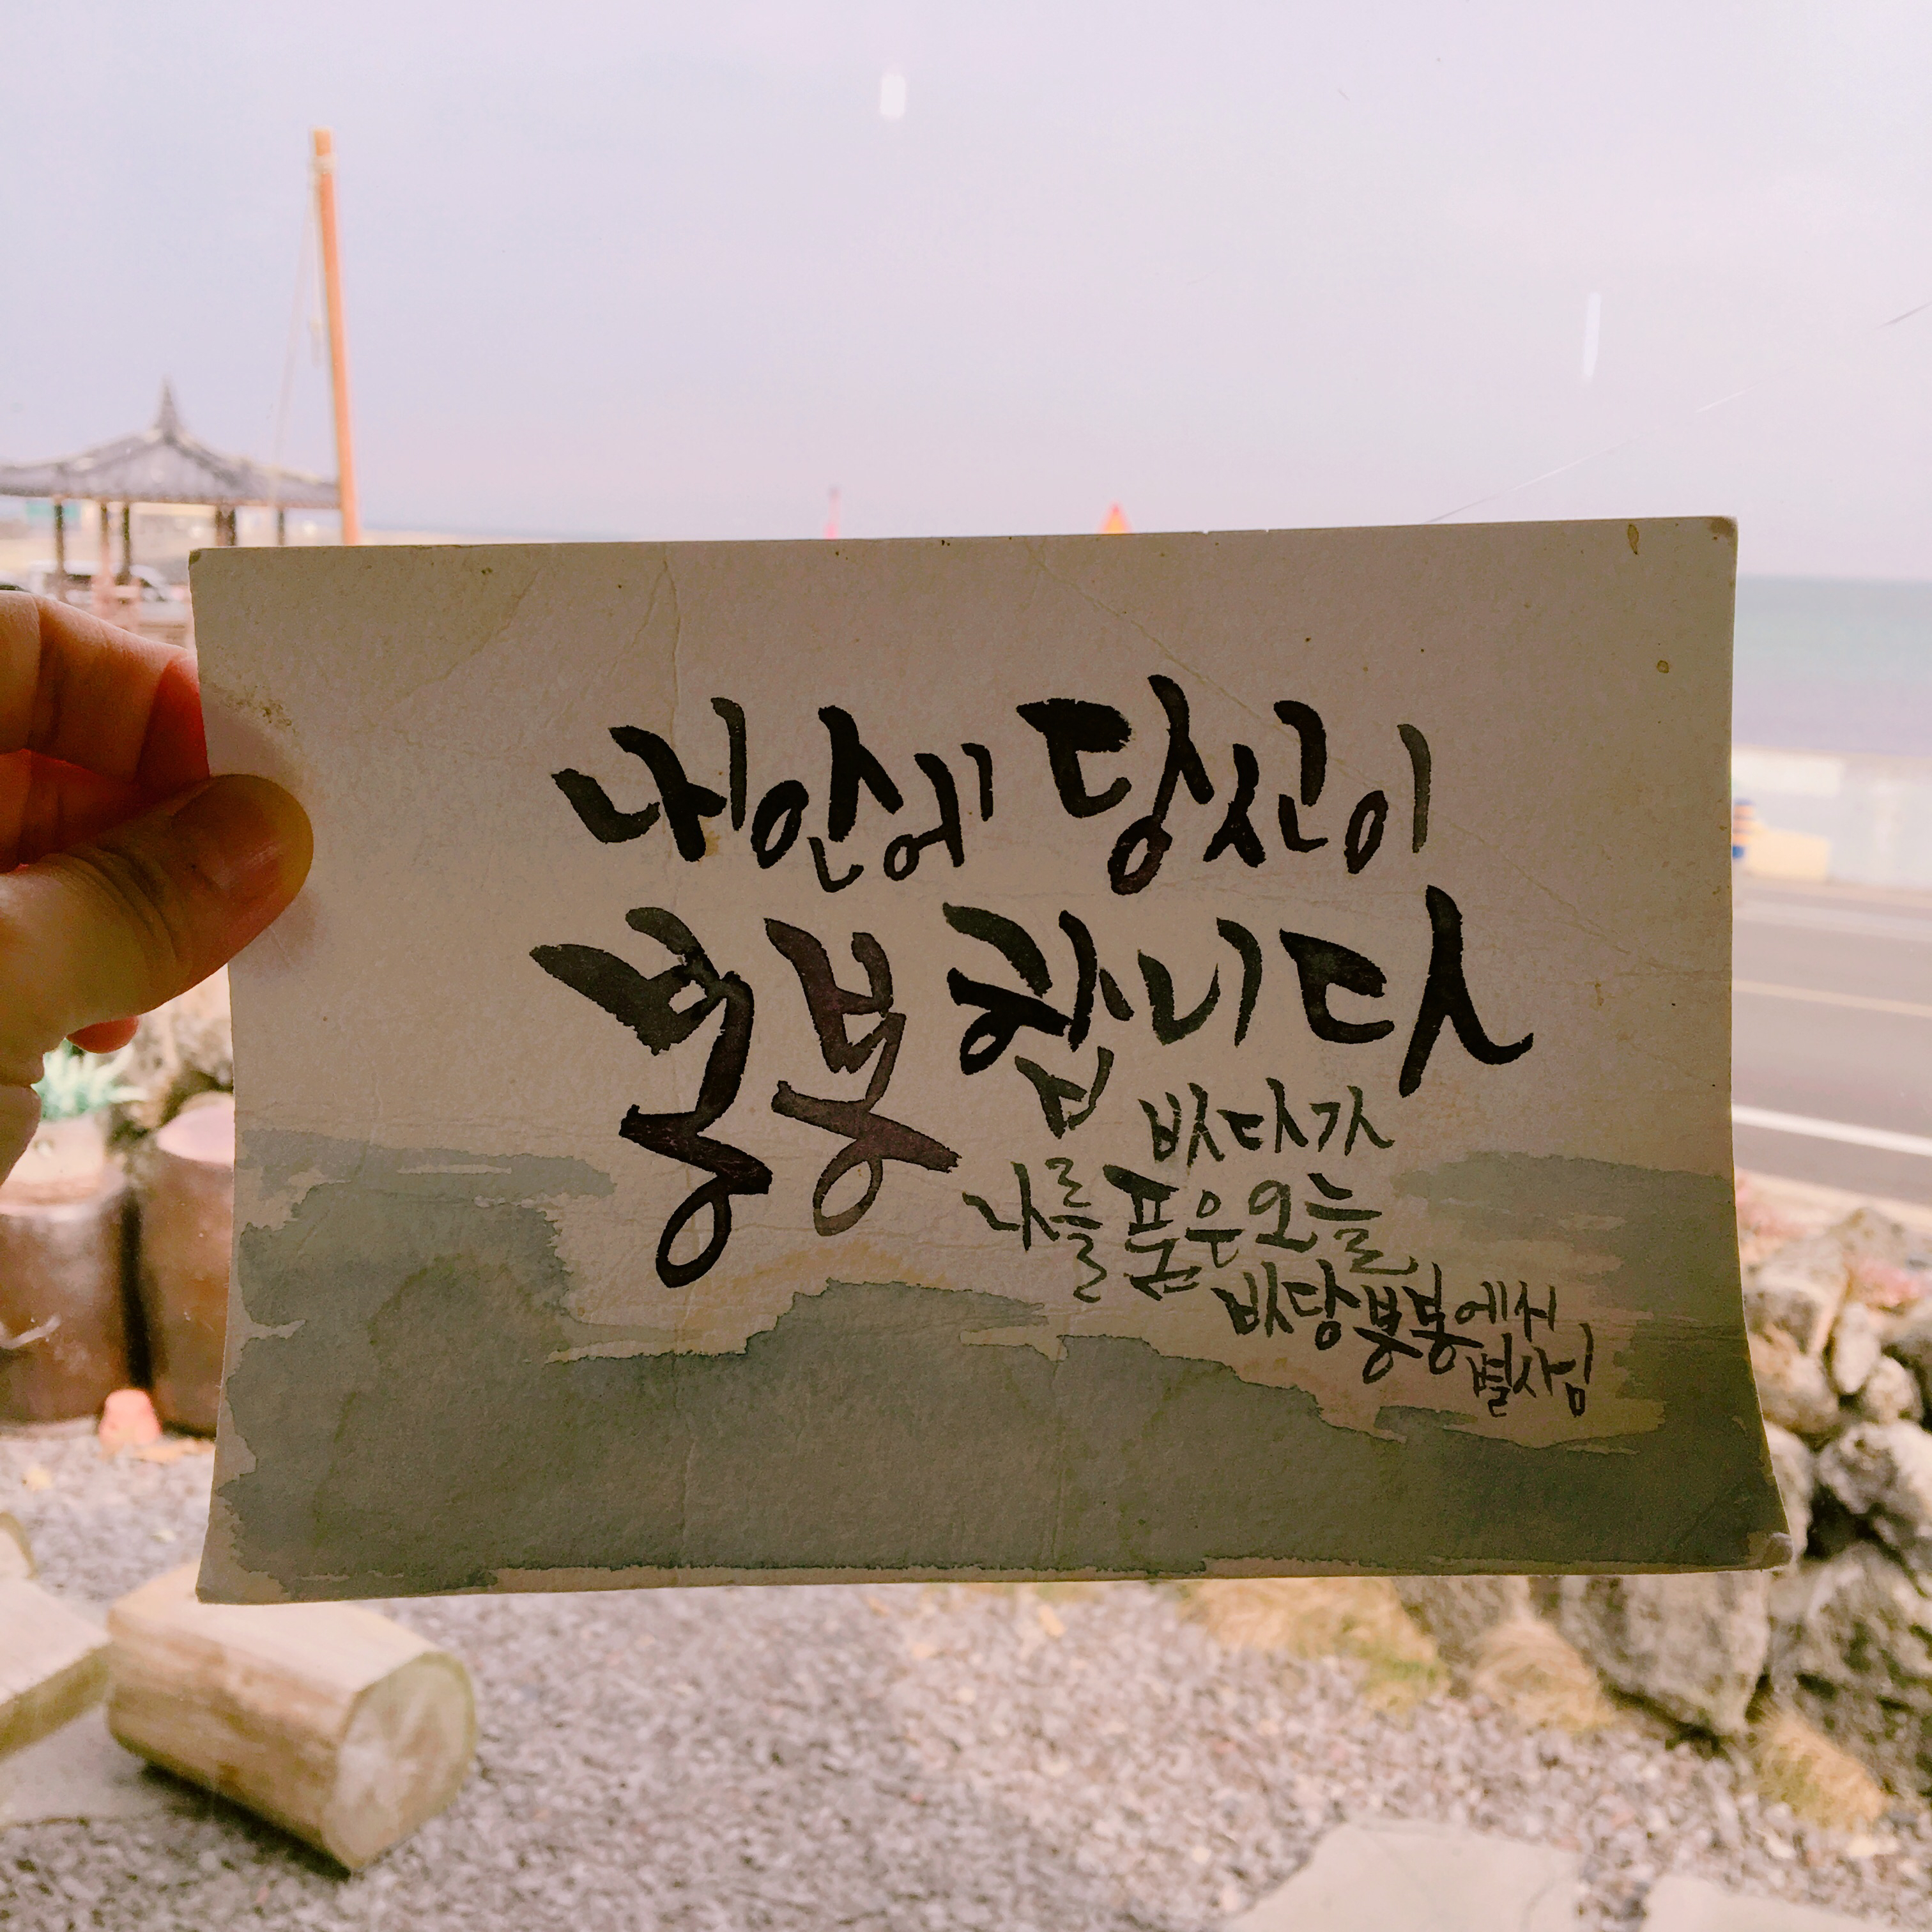 내안에 당신이
붕붕합니다
바다가
나를 품은 오늘
바당봉봉에서
별사임